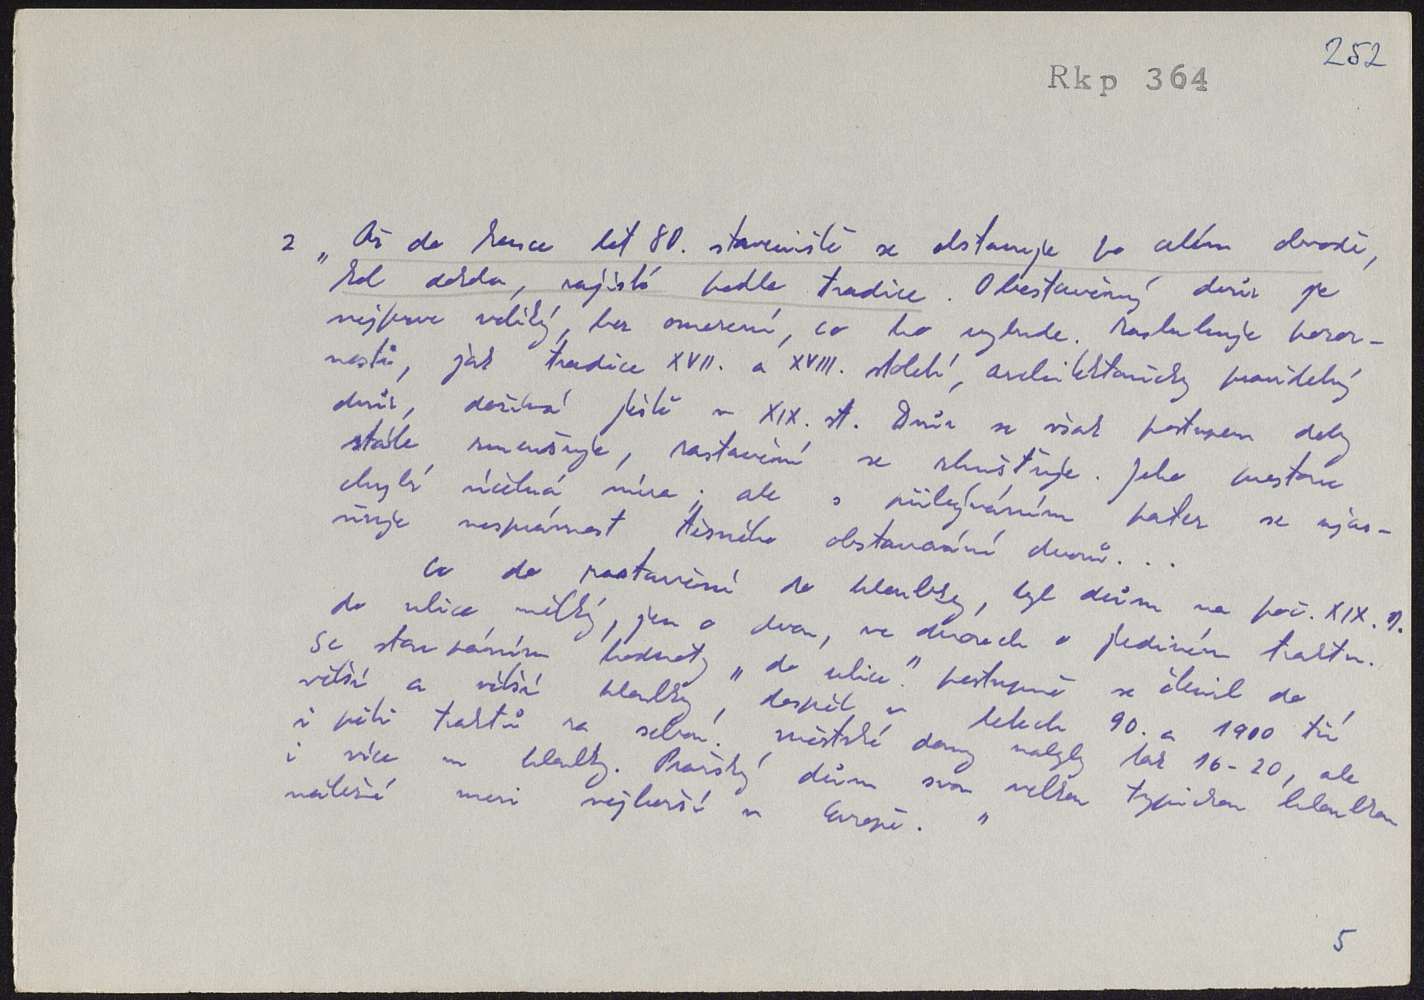 252
Rkp 364
2 „Až do konce let 80. staveniště se obstavuje po celém obvodě,
kol dokola, zajisté podle tradice. Obestavěný dvůr je
nejprve veliký, bez omezení, co ho zybude. Zasluhuje pozor-
nosti, jak tradice XVII. a XVIII. století, architektonicky pravidelný
dvůr, dožívá ještě v XIX. st. Dvůr se však postupem doby
stále zmenšuje, zastavění se zhušťuje. Jeho prostoru
chybí účelná míra; ale s přibýváním pater se ujas-
ňuje nesprávnost těsného obstavování dvorů...
Co do zastavění do hloubky, byl dům na poč. XIX. st.
do ulice mělký, jen o dvou, ve dvorech o jediném traktu.
Se stoupáním hodnoty „do ulice" postupně se členil do
větší a větší hloubky, dospěl v letech 90. a 1900 tří
i pěti traktů za sebou. Městské domy nabyly tak 16-20, ale
i více m hloubky. Pražský dům svou velkou typickou hloubkou
náleží mezi nejhorší v Evropě."
5